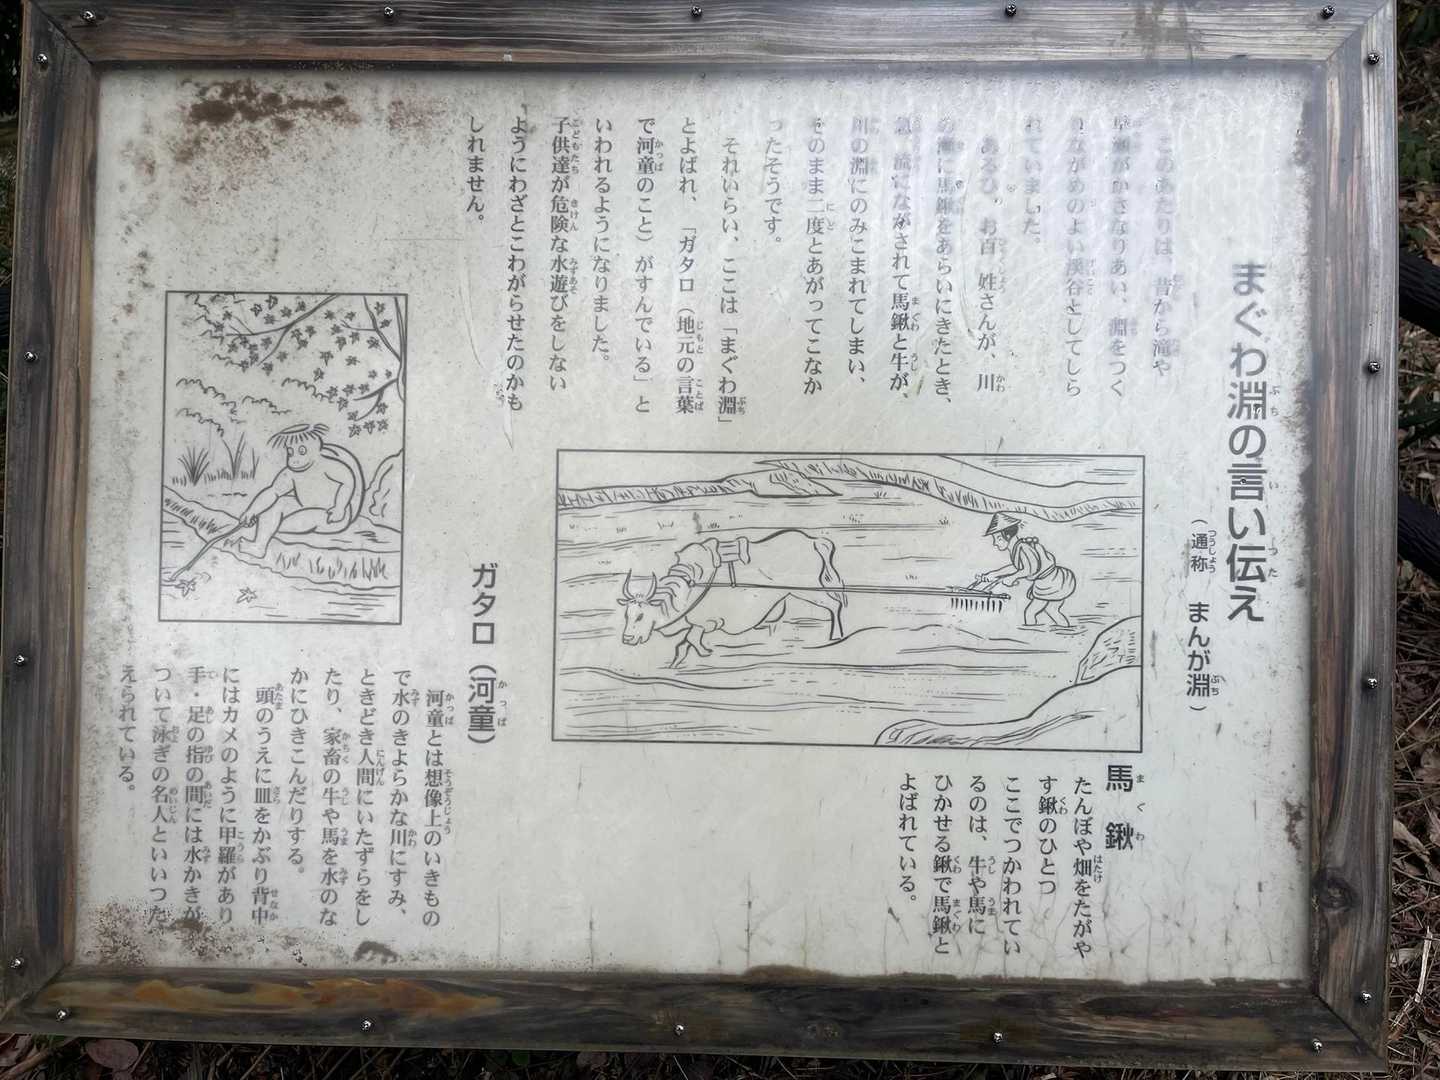 まぐわ淵の言い伝え
（通称　まんが淵）
このあたりは、昔から滝や
早瀬がかさなりあい、淵をつく
りながめのよい渓谷としてしら
れていました。
あるひ、お百姓さんが、川
の淵に馬鍬をあらいにきたとき、
急流にながされて馬鍬と牛が、
川の淵にのみこまれてしまい、
そのまま二度とあがってこなか
ったそうです。
それいらい、ここは「まぐわ淵」
とよばれ、「ガタロ（地元の言葉
で河童のこと）がすんでいる」と
いわれるようになりました。
子供達が危険な水遊びをしない
ようにわざとこわがらせたのかも
しれません。
馬鍬
たんぼや畑をたがや
す鍬のひとつ
ここでつかわれてい
るのは、牛や馬に
ひかせる鍬で馬鍬と
よばれている。
ガタロ（河童）
河童とは想像上のいきもの
で水のきよらかな川にすみ、
ときどき人間にいたずらをし
たり、家畜の牛や馬を水のな
かにひきこんだりする。
頭のうえに皿をかぶり背中
にはカメのように甲羅があり
手・足の指の間には水かきが
ついて泳ぎの名人といいつた
えられている。